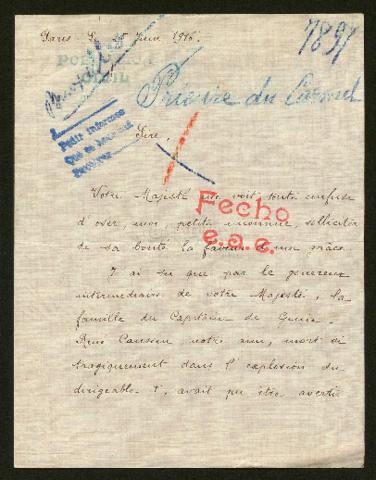 Paris le 25 Juin 1916.
7897
POLITICA
Prieure du Carmel
Pedir informes
Que se
Sire,
Votre Majesté me voit toute confuse
d'oser, moi petite inconnue, solliciter
de sa bonté la faveur d'une grâce.
Fecho
e.a.e.
J'ai su que par le généreux
intermédiaire de votre Majesté, la
famille du Capitaine de Génie
René Caussin notre ami, mort si
tragiquement dans l'explosion du
dirigeable T, avait pu être avertie